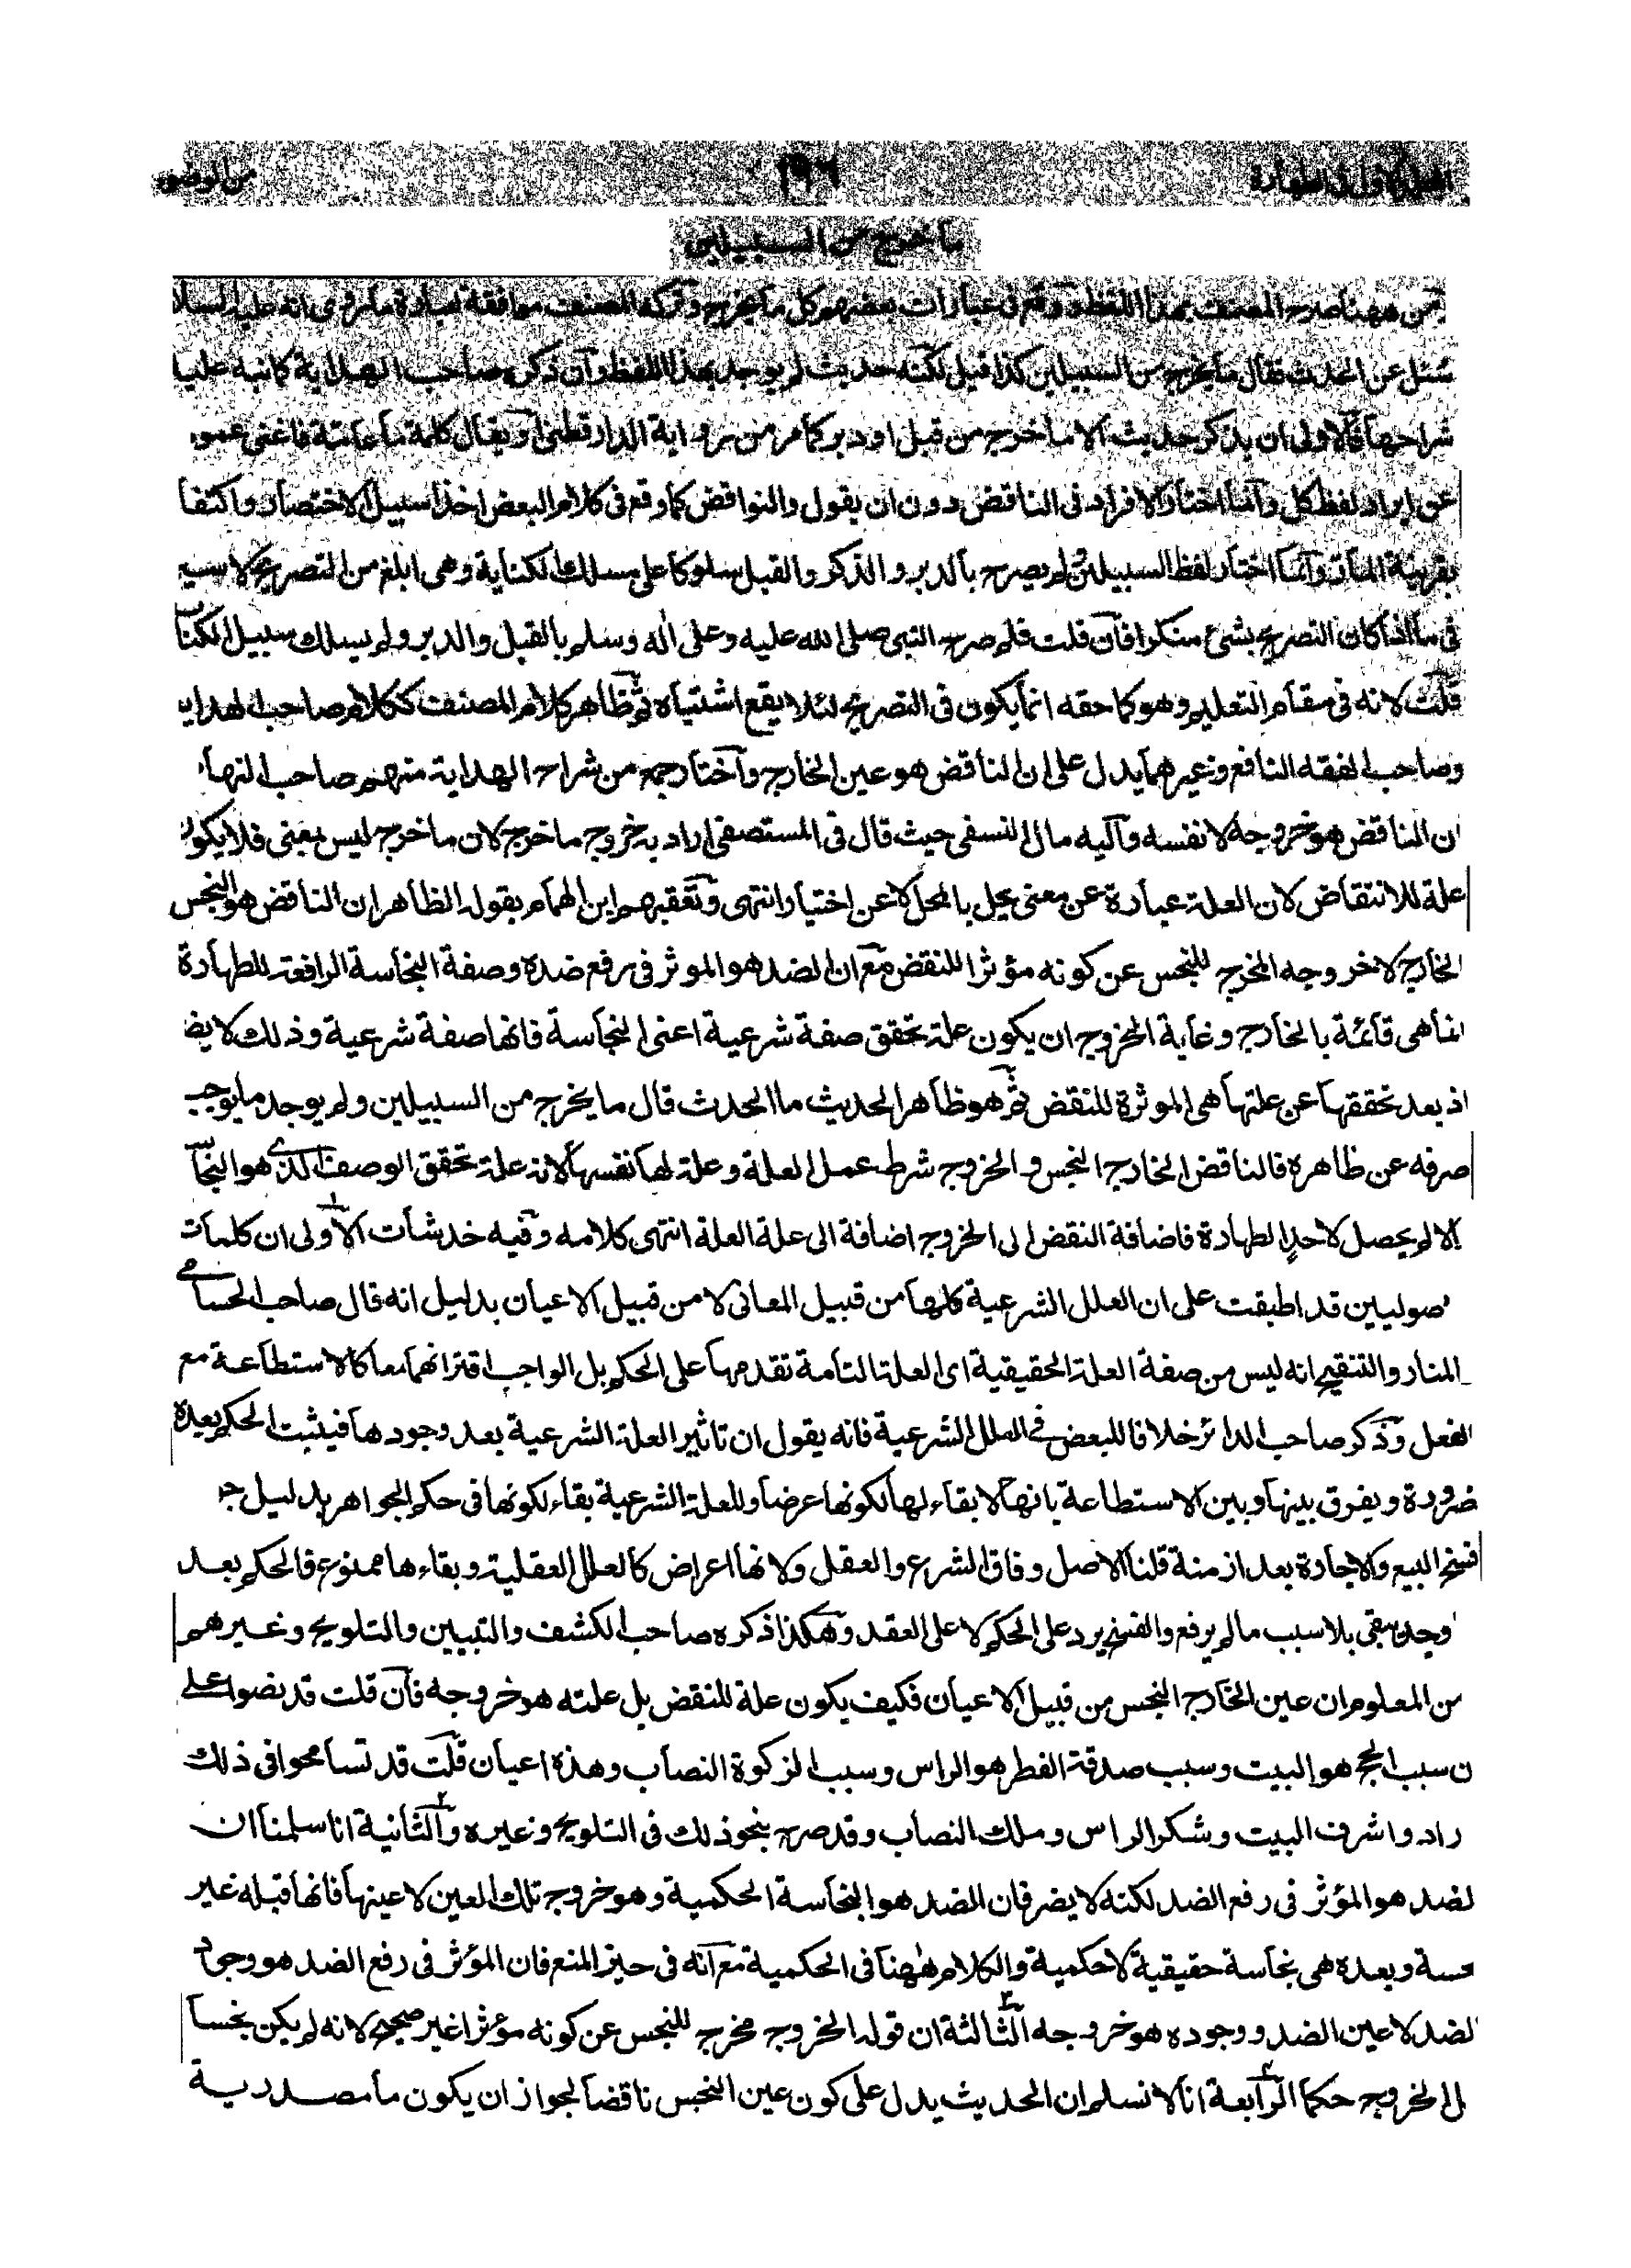 ١٩٦
ما خرج من السبيلين
المصنف بهذا اللفظ ووقع في عبارات بعضهم كل ما يخرج وتركه المصنف موافقة لعبارة ما روى انه عليه السلا
سئل عن الحدث فقال ما يخرج من السبيلين كذا قيل لكنه حديث لم يوجد بهذا اللفظ وان ذكره صاحب الهداية كما نبه عليا
شراحها فالاولى ان يذكر حديث الا ما خرج من قبل او دبر كما مر من رواية الدارقطني او يقال كلمة ما عامة فاغنى عموم
عن ايراد لفظ كل وانما اختار الافراد في الناقض دون ان يقول والنواقض كما وقع في كلام البعض اخذا سبيل الاختصار واكتفا
بقرينة وانما اختار لفظ السبيلين ولم يصرح بالدبر والذكر والقبل سلوكا على مسلك الكناية وهي ابلغ من التصريح لا سيم
في ما اذا كان التصريح بشئ منكرا فان قلت فلم صرح النبي صلى الله عليه وعلى اله وسلم بالقبل والدبر ولم يسلك سبيل الكنايـ
قلت لانه في مقام التعليم وهو كما حقه انما يكون في التصريح لئلا يقع اشتباه ثم ظاهر كلام المصنف ككلام صاحب الهدايه
وصاحب الفقه النافع وغيرهما يدل على ان الناقض هو عين الخارج واختار جمع من شراح الهداية منهم صاحب النهاء
ان الناقض هو خروجه لا نفسه واليه مال النسفي حيث قال في المستصفى اراد به خروج ما خرج لان ما خرج ليس بمعنى فلا يكون
علة للانتقاض لان العلة عبارة عن معنى يحل بالمحل لا عن اختيار انتهى وتعقبهم ابن الهمام بقوله الظاهر ان الناقض هو النجس
الخارج لا خروجه المخرج للنجس عن كونه مؤثرا للنقض مع ان الضد هو الموثر في رفع ضده وصفة النجاسة الرافعة للطهارة
انما هي قائمة بالخارج وغاية الخروج ان يكون علة تحقق صفة شرعية اعني النجاسة فانها صفة شرعية وذلك لا يض
اذ بعد تحققها عن علتها هي الموثرة للنقض ثم هو ظاهر الحديث ما الحدث قال ما يخرج من السبيلين ولم يوجد ما يوجب
صرفه عن ظاهره فالناقض الخارج النجس والخروج شرط عمل العلة وعلة لها نفسها لانه علة تحقق الوصف الذي هو النجاسة
الا لم يحصل لاحد الطهارة فاضافة النقض الى الخروج اضافة الى علة العلة انتهى كلامه وفيه خدشات الاولى ان كلمات
صوليين قد اطبقت على ان العلل الشرعية كلها من قبيل المعاني لا من قبيل الاعيان بدليل انه قال صاحب الحسامي
المنار والتنقيح انه ليس من صفة العلة الحقيقية اى العلة التامة تقدمها على الحكم بل الواجب اقترانهما معا كالاستطاعة مع
الفعل وذكر صاحب الدائر خلافا للبعض في العلل الشرعية فانه يقول ان تاثير العلة الشرعية بعد وجودها فيثبت الحكم بعده
ضرورة ويفرق بينها وبين الاستطاعة بانها لا بقاء لها لكونها عرضا وللعلة الشرعية بقاء لكونها في حكم الجواهر بدليل جو
فسخ البيع والاجارة بعد ازمنة قلنا الاصل وفاق الشرع والعقل ولانها اعراض كالعلل العقلية وبقاءها ممنوع فالحكم بعد
وجده يبقى بلا سبب ما لم يرفع والفسخ يرد على الحكم لا على العقد وهكذا ذكره صاحب الكشف والتبيين والتلويح وغيرهم
من المعلوم ان عين الخارج النجس من قبيل الاعيان فكيف يكون علة للنقض بل علته هو خروجه فان قلت قد نصوا على
ن سبب الحج هو البيت وسبب صدقة الفطر هو الراس وسبب الزكوة النصاب وهذه اعيان قلت قد تسامحوا في ذلك
رادوا شرف البيت وشكر الراس وملك النصاب وقد صرح بنحو ذلك في التلويح وغيره والثانية انا سلمنا ان
لضد هو المؤثر في رفع الضد لكنه لا يضر فان الضد هو النجاسة الحكمية وهو خروج تلك العين لا عينها فانها قبله غير
جسة وبعده هي نجاسة حقيقية لا حكمية والكلام ههنا في الحكمية مع انه في حيز المنع فان المؤثر في رفع الضد هو وجود
لضد لا عين الضد ووجوده هو خروجه الثالثة ان قوله الخروج مخرج للنجس عن كونه مؤثرا غير صحيح لانه لم يكن نجسا
ل الخروج حكما الرابعة انا لا نسلم ان الحديث يدل على كون عين النجس ناقضا لجواز ان يكون ما مصدرية